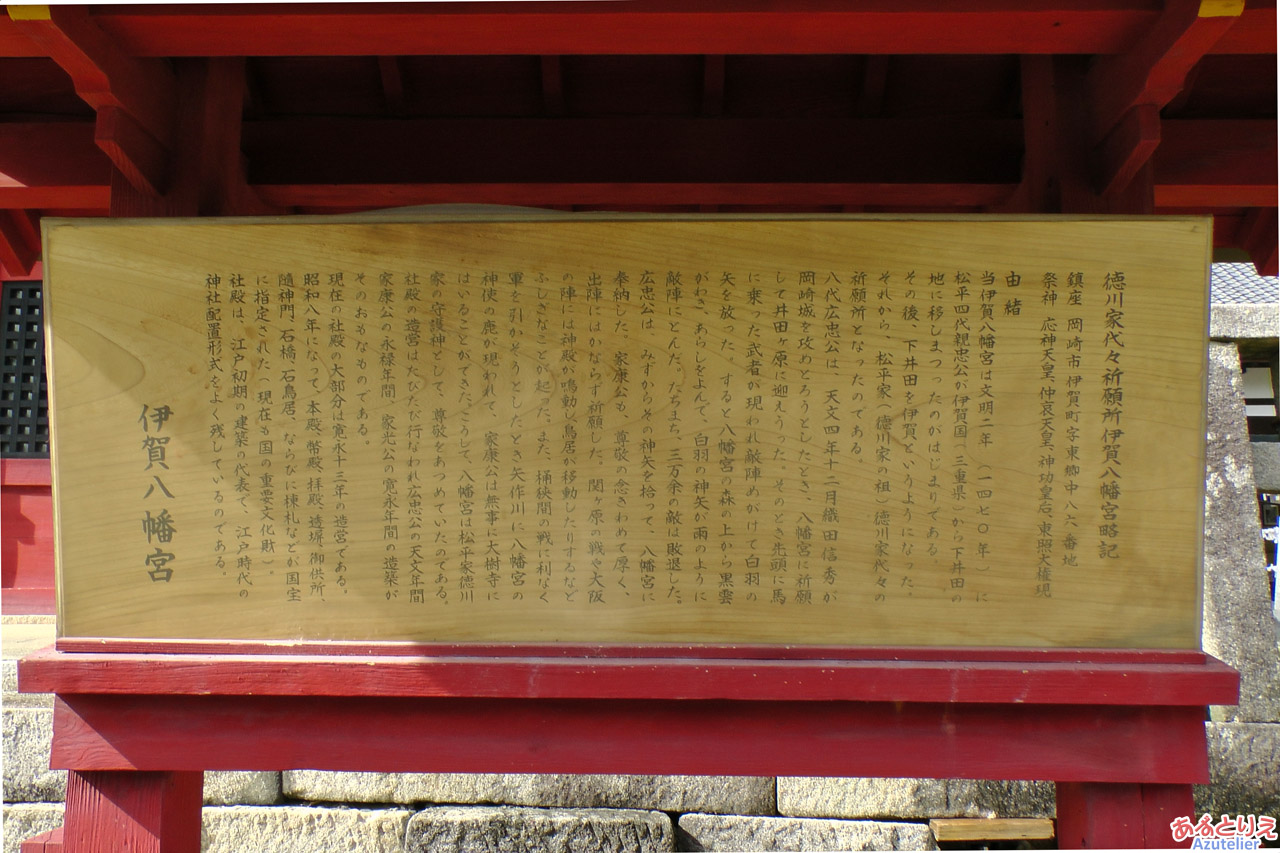 徳川家代々祈願所伊賀八幡宮略記
鎮座 岡崎市伊賀町字東郷中八六番地
祭神 応神天皇、仲哀天皇、神功皇后、東照大権現
由緒
当伊賀八幡宮は文明二年 (一四七〇年) に
松平四代親忠公が伊賀国(三重県)から下井田の
地に移しまつったのがはじまりである。
その後、下井田を伊賀、というようになった。
それから、松平家(徳川家の祖)徳川家代々の
祈願所となったのである。
八代広忠公は、天文四年十二月織田信秀が
岡崎城を攻めとろうとしたとき、八幡宮に祈願
して井田ヶ原に迎えうった。そのとき先頭に馬
に乗った武者が現われ敵陣めがけて白羽の
矢を放った。すると八幡宮の森の上から黒雲
がわき、あらしをよんで、白羽の神矢が雨のように
敵陣にとんだ。たちまち、三万余の敵は敗退した。
広忠公は、みずからその神矢を拾って、八幡宮に
奉納した。家康公も、尊敬の念きわめて厚く、
出陣にはかならず祈願した。関ヶ原の戦や大阪
の陣には神殿が鳴動し鳥居が移動したりするなど
ふしぎなことが起った。また、桶狭間の戦に利なく
軍を引かそうとしたとき矢作川に八幡宮の
神使の鹿が現われて、家康公は無事に大樹寺に
はいることができた。こうして、八幡宮は松平家徳川
家の守護神として、尊敬をあつめていたのである。
社殿の造営はたびたび行なわれ広忠公の天文年間
家康公の永禄年間、家光公の寛永年間の造築が
そのおもなものである。
現在の社殿の大部分は寛永十三年の造営である。
昭和八年になって、本殿、幣殿、拝殿、透塀、御供所、
随神門、石橋、石鳥居、ならびに棟札などが国宝
に指定された(現在も国の重要文化財)。
社殿は、江戸初期の建築の代表で、江戸時代の
神社配置形式をよく残しているのである。
伊賀八幡宮
あるとりえ
Azutelier